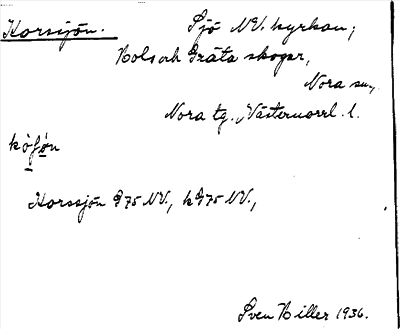 Korssjön. Sjö NV. kyrkan;
Bols och Gräta skogar,
Nora sn,
Nora tg. Västernorrl. l.
Korssjön G75 NV., kG75 NV.,
Sven Biller 1936.